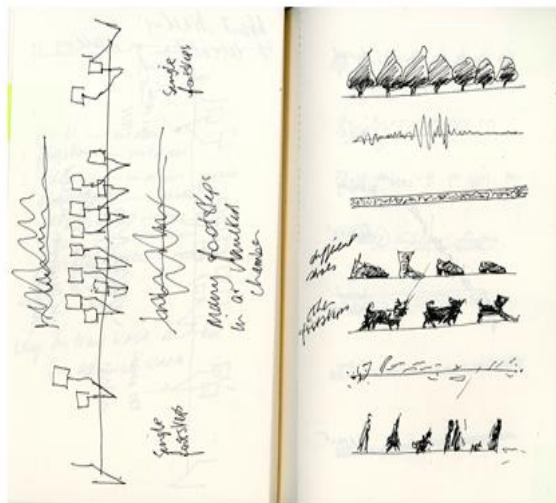 Single
footsteps
Many footsteps
in a vaulted
chamber
Single
footsteps
different
shoes
other
footsteps